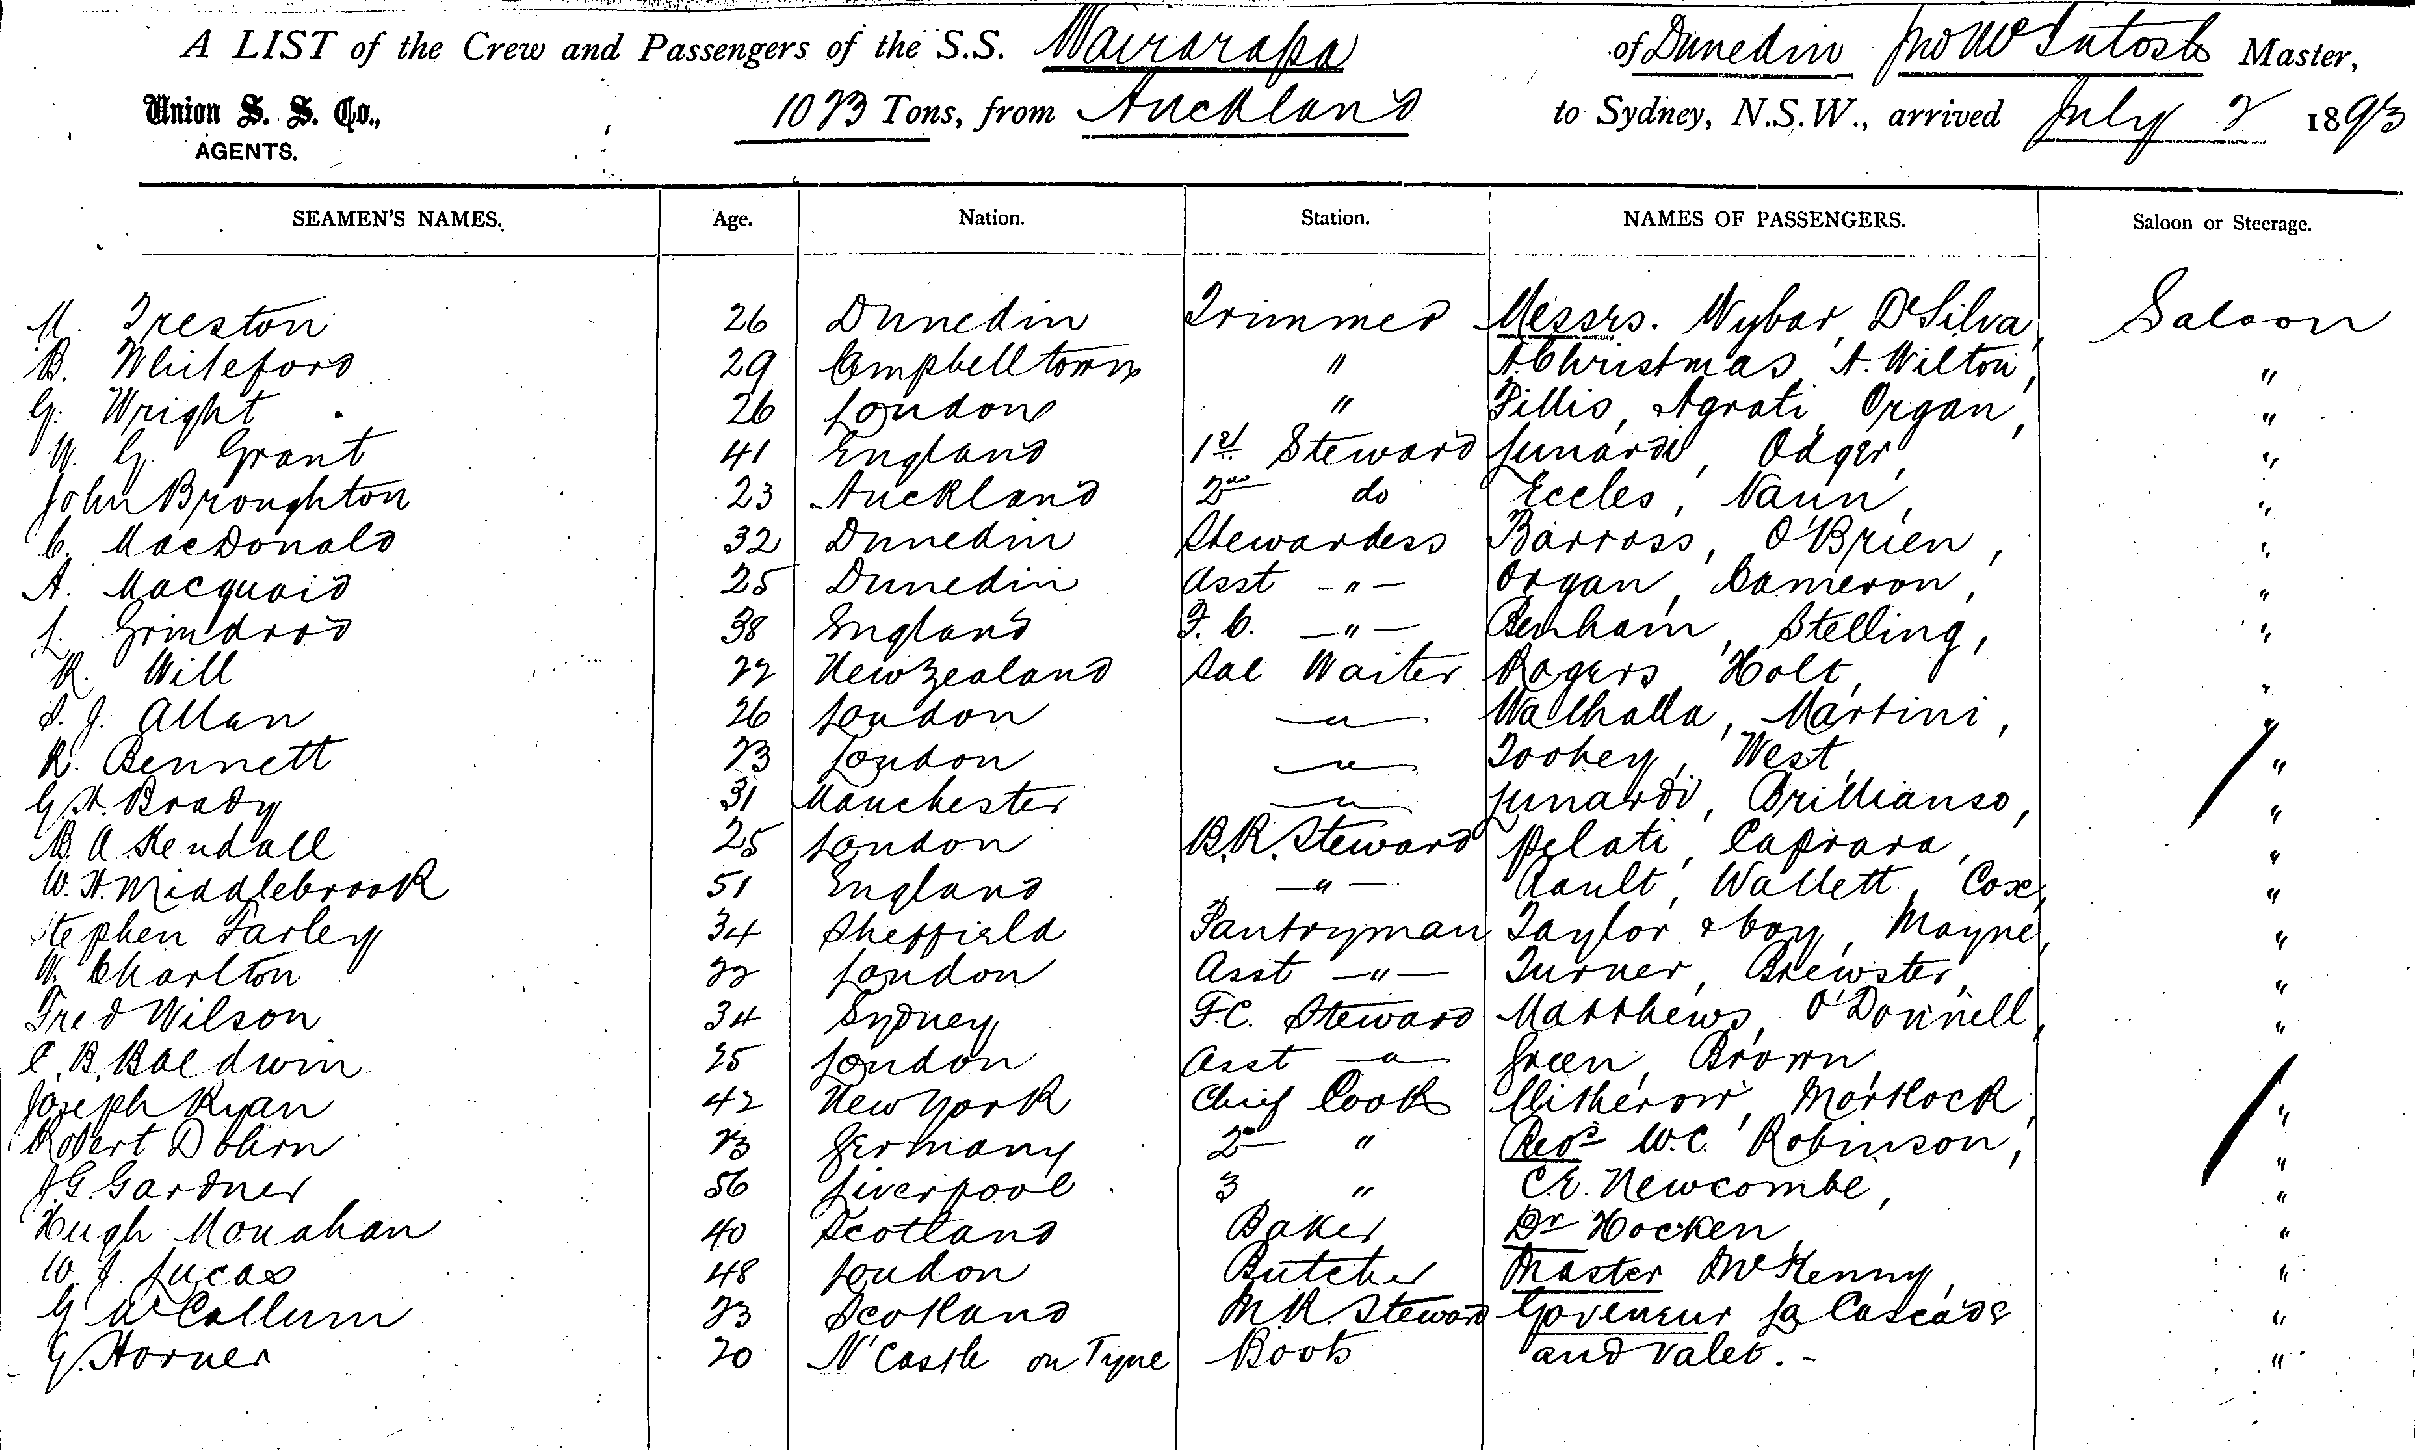 A LIST of the Crew and Passengers of the S.S. Wairarapa of Dunedin Jno McIntosh Master,
Union S. S. Co., 1023 Tons, from Auckland to Sydney, N.S.W., arrived July 2 1893
AGENTS.
SEAMEN'S NAMES. Age. Nation. Station. NAMES OF PASSENGERS. Saloon or Steerage.
M. Treston 26 Dunedin Trimmer Messrs. Wybar, De Silva, Saloon
B. Whiteford 29 Campbelltown " A. Christmas, A. Wilton, "
G. Wright 26 London " Fillis, Agrati, Organ, "
W. G. Grant 41 England 1st Steward Lunardi, Odger, "
John Broughton 23 Auckland 2nd do Eccles, Nunn, "
C. MacDonald 32 Dunedin Stewardess Barross, O'Brien, "
A. Macquaid 25 Dunedin Asst -"- Organ, Cameron, "
L. Grindrod 38 England F. C. -"- Benham, Stelling, "
R. Will 22 New Zealand Sal Waiter Rogers, Holt, "
S. J. Allan 26 London -"- Walhalla, Martini, "
R. Bennett 23 London -"- Toohey, West, "
G. H. Brady 31 Manchester -"- Lunardi, Brillianso, "
B. A. Kendall 25 London B.R. Steward Pelati, Caprara, "
W. H. Middlebrook 51 England -"- Ault, Wallett, Cox, "
Stephen Farley 34 Sheffield Pantryman Taylor & boy, Mayne, "
W. Charlton 22 London Asst -"- Turner, Brewster, "
Fred Wilson 34 Sydney F.C. Steward Matthews, O'Donnell, "
C. B. Baldwin 25 London Asst -"- Green, Brown, "
Joseph Ryan 42 New York Chief Cook Clitherow, Mortlock, "
Robert Dohrn 23 Germany 2nd " Revds W.C. Robinson, "
J. G Gardner 56 Liverpool 3 " C.E. Newcombe, "
Hugh Monahan 40 Scotland Baker Dr Hocken, "
W. J. Lucas 48 London Butcher Master McKenny, "
G McCallum 23 Scotland M.R. Steward Goveneur La Cascade "
G. Horner 20 N'Castle on Tyne Boots and Valet. - "